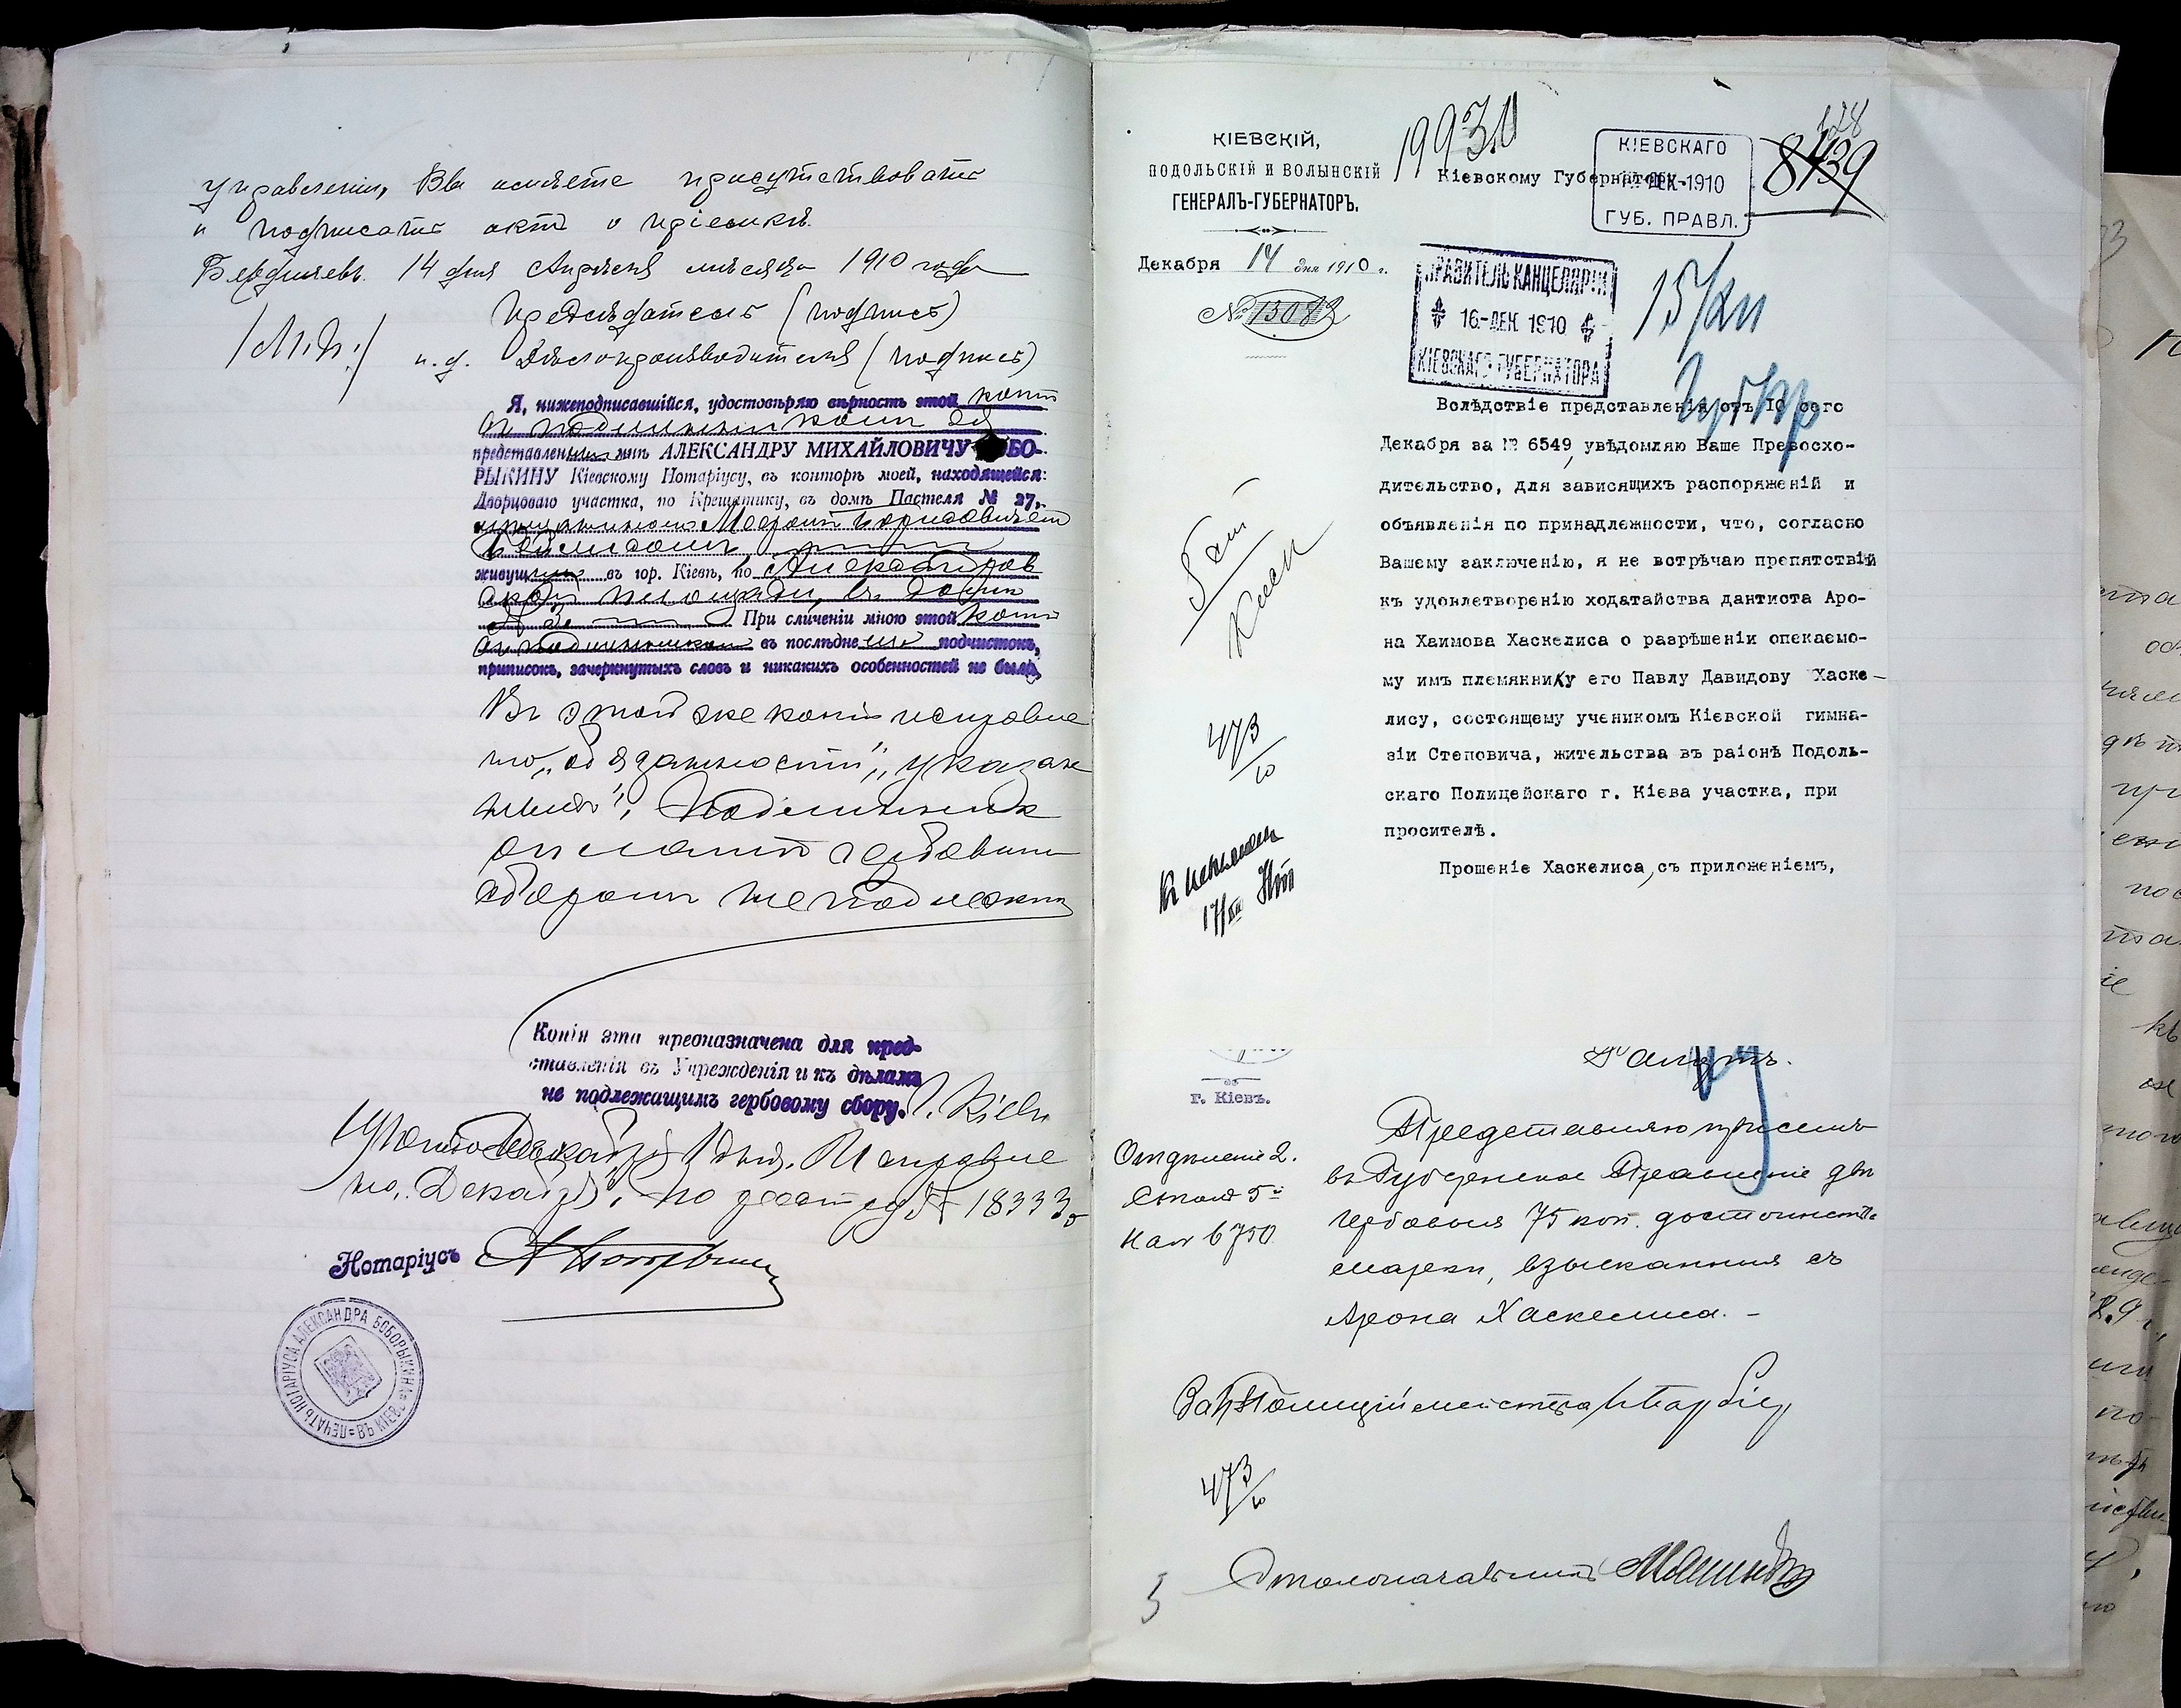 управленія, Вы можете присутствовать
и подписать актъ о пріемкѣ.
Бердичевъ. 14 дня Апрѣля мѣсяца 1910 года
Предсѣдатель (подпись)
/М.П./ и. д. Дѣлопроизводителя (подпись)
Я, нижеподписавшійся, удостовѣряю вѣрность этой копіи
съ подлинникомъ ея
представленнымъ мнѣ АЛЕКСАНДРУ МИХАЙЛОВИЧУ БО-
РЫКИНУ Кіевскому Нотаріусу, въ конторѣ моей, находящейся:
Дворцоваго участка, по Крещатику, въ домѣ Пастеля № 27,
мѣщаниномъ Меромъ Борисовичемъ
живущимъ въ гор. Кіевѣ, по Александров
ской площади, въ домѣ
При сличеніи мною этой копіи
съ подлинникомъ въ послѣднемъ подчистокъ,
приписокъ, зачеркнутыхъ словъ и никакихъ особенностей не было,
Въ этой же копіи исправле
но „обязанности", „указан
нымъ". Подлинникъ
оплатѣ гербовымъ
сборомъ не подлежитъ
Копія эта предназначена для пред-
ставленія въ Учрежденія и къ дѣламъ
не подлежащимъ гербовому сбору. Г. Кіевъ
1910 года Декабря 1 дня. Исправле
но „Декабря". По реестру № 18333
Нотаріусъ А Боборыкинъ
ПЕЧАТЬ НОТАРІУСА АЛЕКСАНДРА БОБОРЫКИНА ВЪ КІЕВѢ
КІЕВСКІЙ,
ПОДОЛЬСКІЙ И ВОЛЫНСКІЙ
ГЕНЕРАЛЪ-ГУБЕРНАТОРЪ.
Декабря 14 дня 1910 г.
№ 13082
19930
Кіевскому Губернатору.
КІЕВСКАГО
ДЕК-1910
ГУБ. ПРАВЛ.
8139
128
ПРАВИТЕЛЬ КАНЦЕЛЯРІИ
16-ДЕК 1910
КІЕВСКАГО ГУБЕРНАТОРА
15/XII
Вслѣдствіе представленія отъ 10 сего
Декабря за № 6549, увѣдомляю Ваше Превосхо-
дительство, для зависящихъ распоряженій и
объявленія по принадлежности, что, согласно
Вашему заключенію, я не встрѣчаю препятствій
къ удовлетворенію ходатайства дантиста Аро-
на Хаимова Хаскелиса о разрѣшеніи опекаемо-
му имъ племяннику его Павлу Давидову Хаске-
лису, состоящему ученикомъ Кіевской гимна-
зіи Степовича, жительства въ раіонѣ Подоль-
скаго Полицейскаго г. Кіева участка, при
просителѣ.
Прошеніе Хаскелиса, съ приложеніемъ,
473/10
17/XII
г. Кіевъ.
Рапортъ.
Отдѣленіе 2.
Столъ 5й
6750
Представляю при семъ
въ Губернское Правленіе двѣ
гербовыя 75 коп. достоинства
марки, взысканныя съ
Арона Хаскелиса. –
За Полиціймейстера
473/10
Столоначальникъ
5